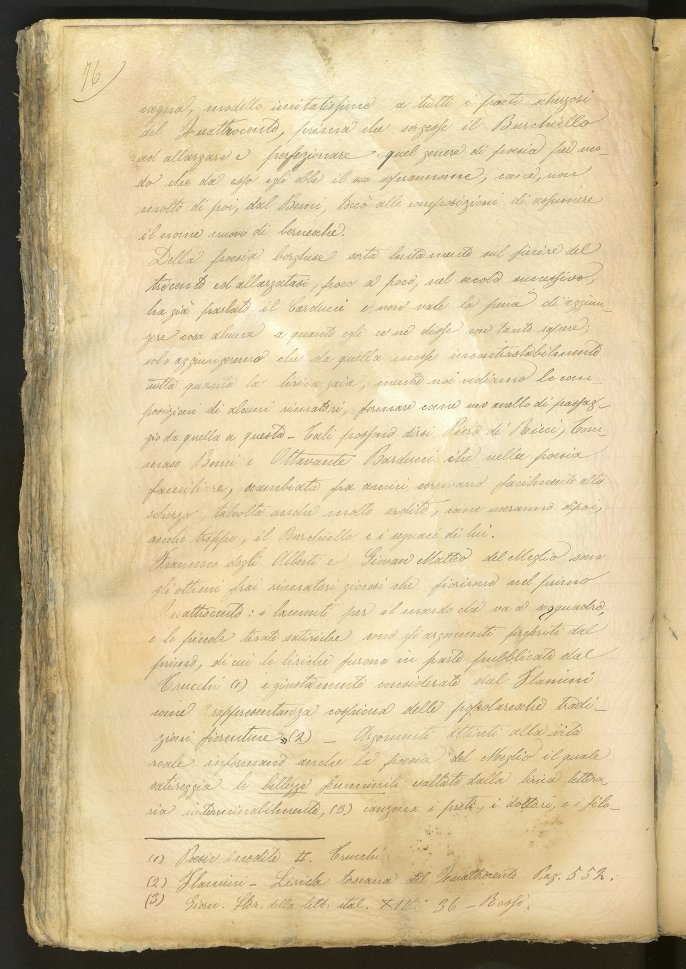 76
cagna, modello imitatissimo a tutti i poeti scherzosi
del Quattrocento, prima che sorgesse il Burchiello
ad allargare e perfezionare quel genere di poesia per mo-
do che da esso egli ebbe il suo soprannome, come, non
molto di poi, dal Berni, toccò alle composizioni di assumere
il nome nuovo di bernesche.
Della poesia borghese sorta lentamente sul finire del
trecento ed allargatasi, poco a poco, nel secolo successivo,
ha già parlato il Carducci e non vale la pena di aggiun-
gere cosa alcuna a quanto egli ce ne disse con tanto sapere;
solo aggiungeremo che da quella mosse incontrastabilmente
tutta quanta la lirica gaia, mentre noi vediamo le com-
posizioni di alcuni rimatori, formare come uno anello di passag-
gio da quella a questa - Tali possono dirsi Piero de' Ricci, Tom-
maso Benci e Ottavante Barducci che nella poesia
famigliare, scambiata fra amici correvano facilmente allo
scherzo, talvolta anche molto ardito, come useranno dipoi,
anche troppo, il Burchiello e i seguaci di lui.
Francesco degli Alberti e Giovan Matteo del Meglio sono
gli ottimi frai rimatori giocosi che fiorirono nel primo
Quattrocento: i lamenti per il mondo che va a soqquadro,
e le piccole tirate satiriche sono gli argomenti preferiti dal
primo, di cui le liriche furono in parte pubblicate dal
Trucchi (1) e giustamente considerate dal Flamini
come "rappresentanza cospicua delle popolaresche tradi-
zioni fiorentine" (2) - Argomenti attinti alla vita
reale informano anche la poesia del Meglio il quale
satireggia le bellezze femminili esaltate dalla lirica lettera-
ria interminabilmente, (3) canzona i preti, i dottori, e i filo-
(1) Poesie inedite II. Trucchi.
(2) Flamini - Lirica toscana del Quattrocento Pag. 552.
(3) Giorn. Stor. della lett. ital. XII: 36 - Rossi.